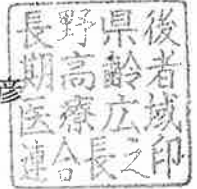 長野県後
期高齢者
医療広域
連合長之印
彦